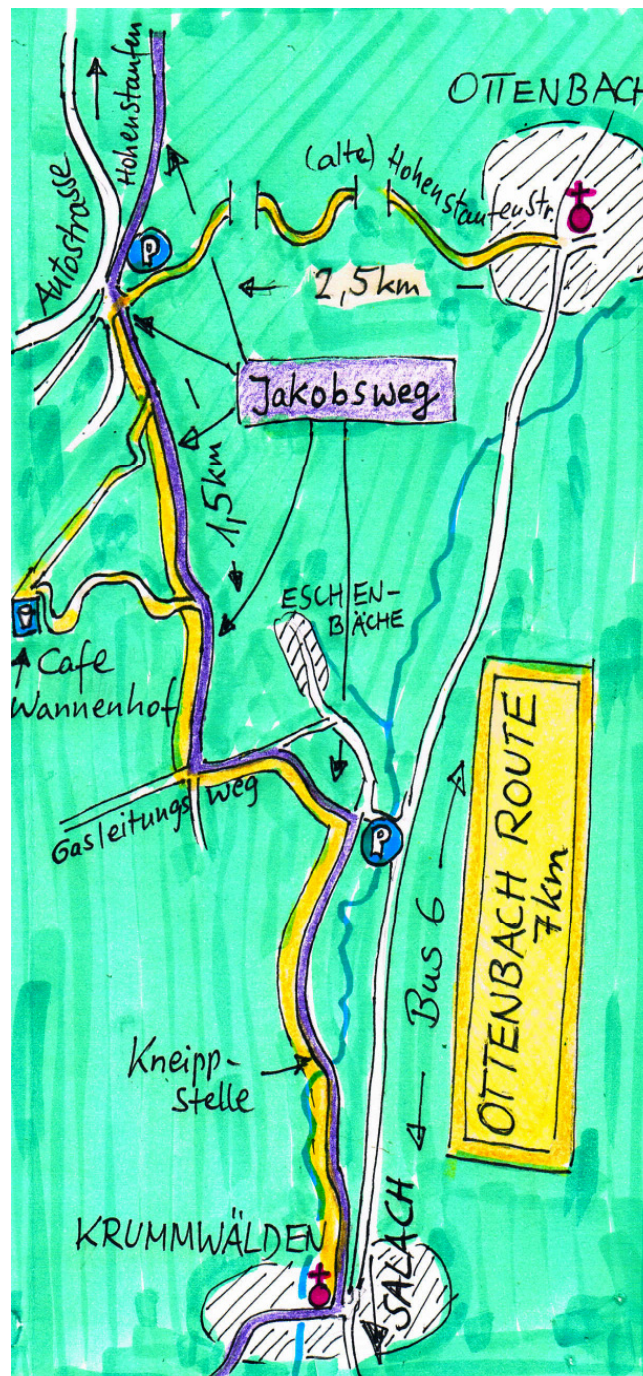 OTTENBACH
Hohenstaufen
Autostrasse
P
(alte) Hohenstaufenstr.
2,5km
Jakobsweg
1,5km
ESCHEN-
BÄCHE
Cafe
Wannenhof
Gasleitungsweg
P
OTTENBACH ROUTE
7km
Bus 6
Kneipp-
stelle
KRUMMWÄLDEN
SALACH